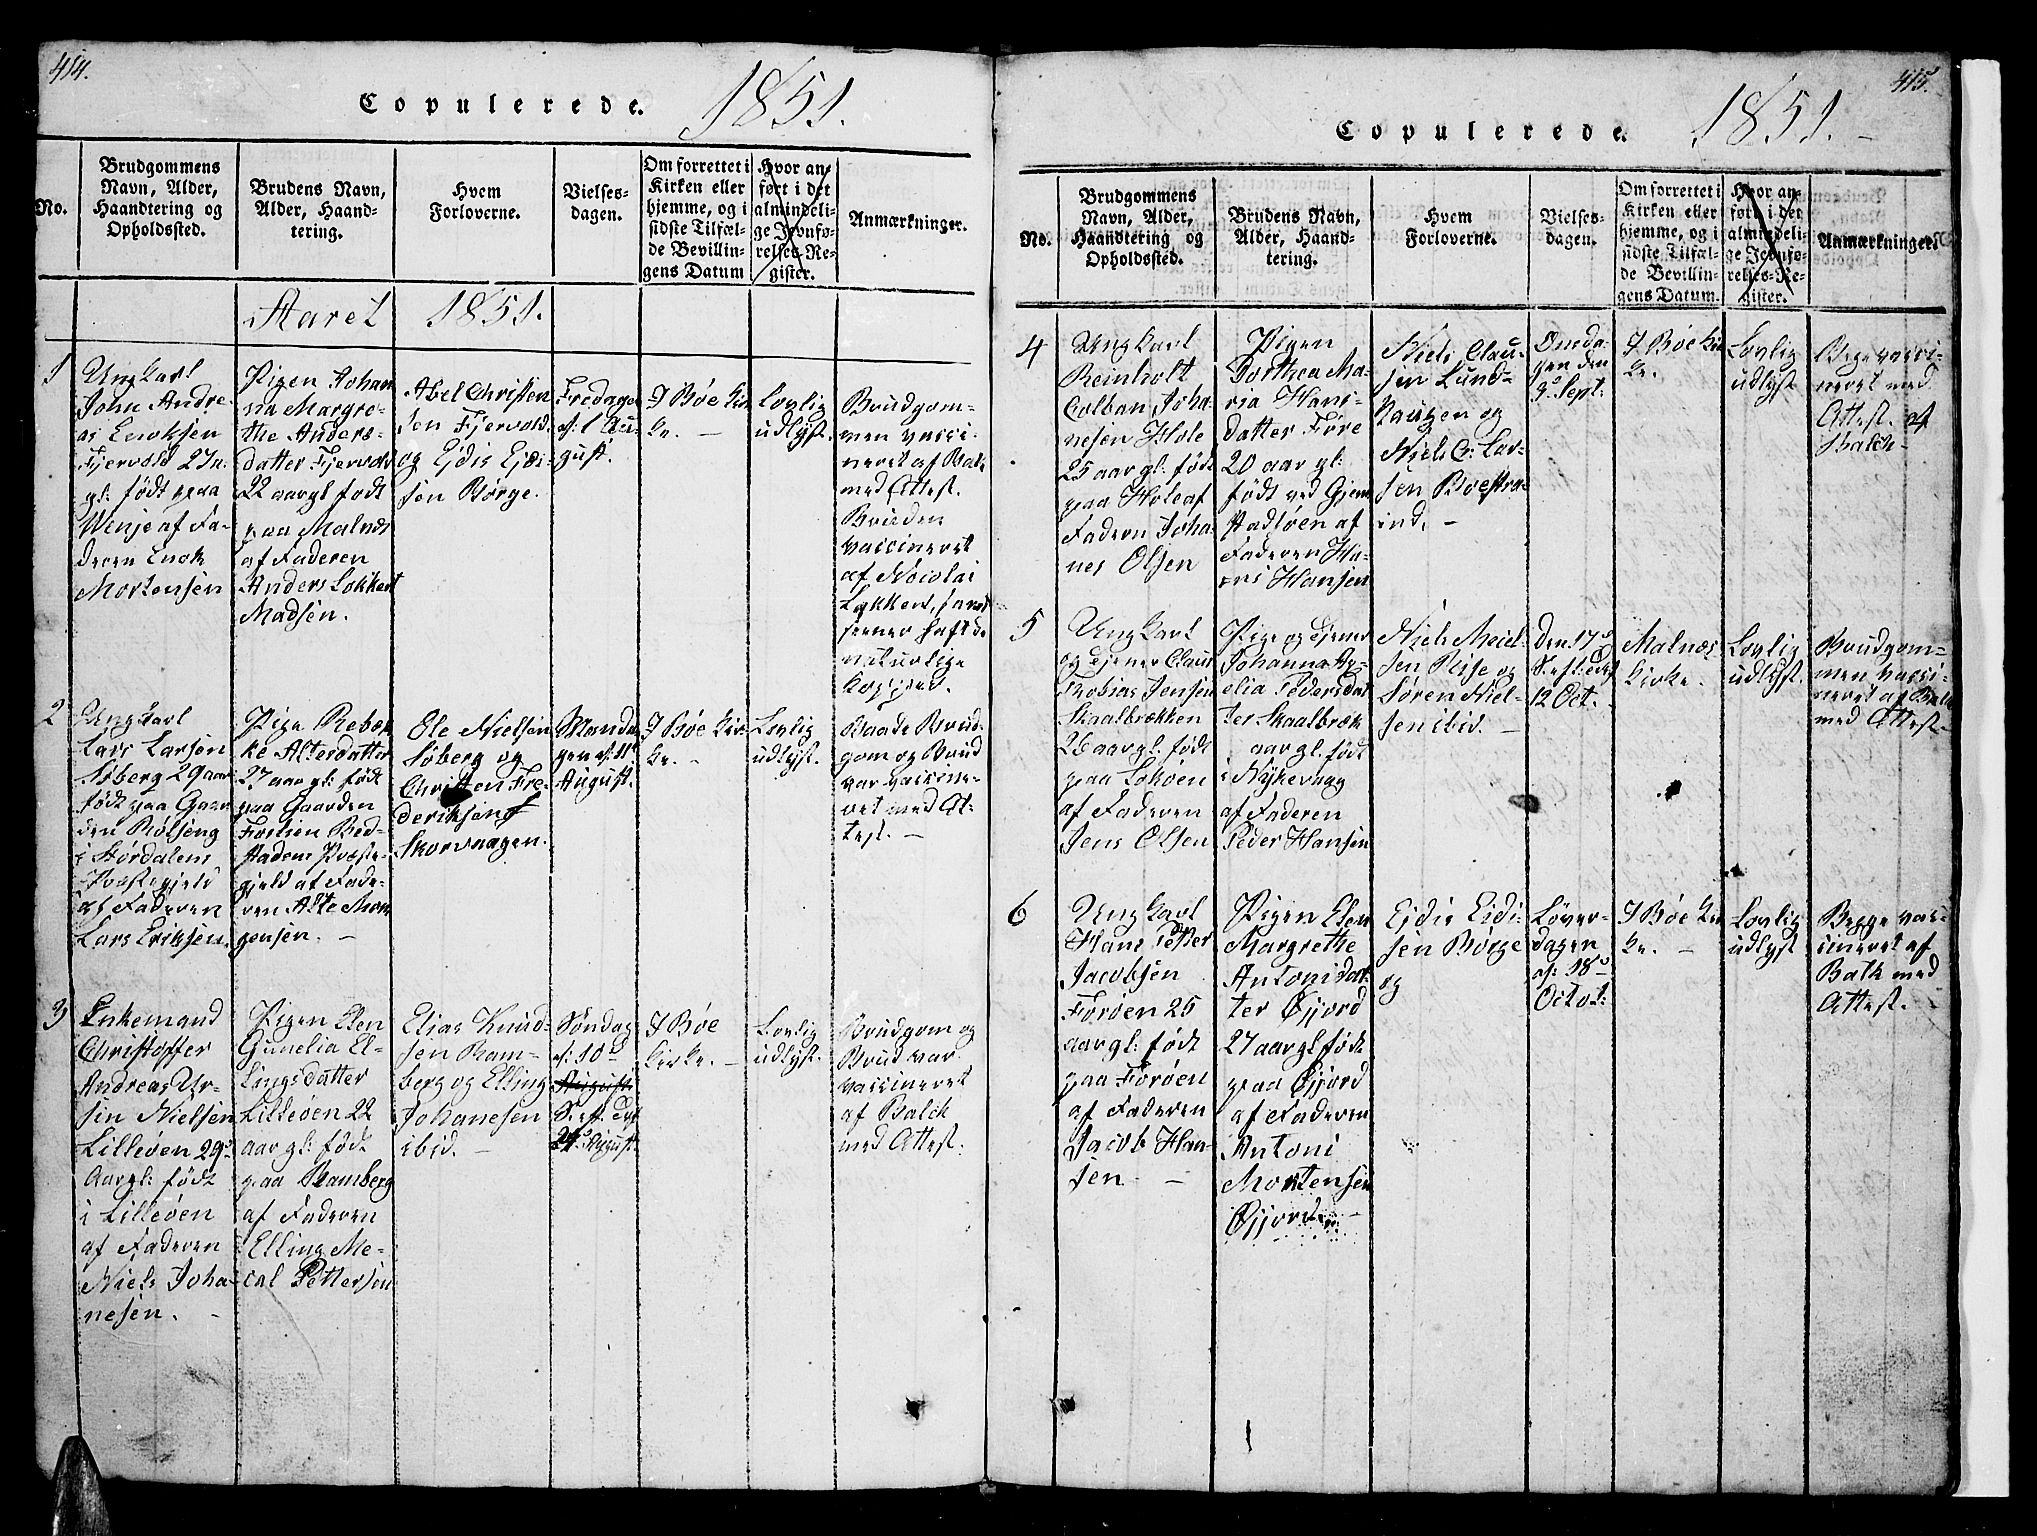 414.
Copulerede. 1851.
No.
Brudgommens
Navn, Alder,
Haandtering og
Opholdssted.
Brudens Navn,
Alder, Haand-
tering.
Hvem
Forloverne.
Vielses-
dagen.
Om forrettet i
Kirken eller
hjemme, og i
sidste Tilfæl-
de Bevillin-
gens Datum
Hvor an-
ført i det
almindeli-
ge Jevnfø-
relses-Re-
gister.
Anmærkninger.
Aaret 1851.
1
Ungkarl
John Andre-
as Enoksen
Fjervold 27
gl: født paa
Wenje af Fa-
deren Enok
Mortensen
Pigen Johan
na Margre-
the Anders-
datter Fjervold
22 aar gl født
paa Malnæs
af Faderen
Anders Lokkert
Madsen.
Abel Christen
sen Fjervold
og Ejdis Ejdi-
sen Børge.
Fredagen
d: 1 Au-
gust.
I Bøe Kir
ke. —
Lovlig
udlyst.
Brudgom-
men vacci-
neret af Balk
med Attest.
Bruden
vaccineret
af Nicolai
Lykken,
seener haft de
naturlige
Kopper.
2
Ungkarl
Lars Larsen
Søberg 29 aar
født paa Gaar
den Rølseng
i Størdalens
Præstegjeld
af Faderen
Lars Eriksen.
Pige Rebek
ke Altersdatter
27 aar gl: født
paa Gaarden
Forlien Bed-
stadens Præste-
gjeld af Fade-
ren Alte Mon
gensen. —
Ole Nielsen
Søberg og
Christen Fre
deriksen
Skorvaagen.
Manda
gen d: 11te
August.
I Bøe Kir
ke. —
Lovlig
udlyst.
Baade Brud-
gom og Brud
var vaccine-
ret med At-
test. —
3
Enkemand
Christoffer
Andreas Ur-
sin Nielsen
Lilleøen 29
Aar gl: født
i Lilleøen
af Faderen
Niels Joha-
nesen. —
Pigen Elen
Gunelia El-
lingsdatter
Lilleøen 22
aar gl: født
paa Ramberg
af Faderen
Elling Me-
cal Pettersen
Elias Knud-
sen Ram-
berg og Elling
Johanesen
ibid. —
Søndag
d: 10d
August
S. eft. Tref
24d August.
I Bøe
Kirke. —
Lovlig
udlyst.
Brudgom og
Brud var
vaccineret
af Balck
med Attest.
415.
Copulerede. 1851. —
No.
Brudgommens
Navn, Alder,
Haandtering og
Opholdssted.
Brudens Navn,
Alder, Haand-
tering.
Hvem
Forloverne.
Vielses-
dagen.
Om forrettet i
Kirken eller
hjemme, og i
sidste Tilfæl-
de Bevillin-
gens Datum.
Hvor an-
ført i det
almindeli-
ge Jevnfø-
relses-Re-
gister.
Anmærkninger.
4
Ungkarl
Reinholt
Colban Joha-
nesen Hole
25 aar gl: født
paa Hole af
Fadern Joha-
nes Olsen
Pigen
Dorthea Ma-
ria Hans-
datter Føre
20 aar gl:
født ved Gjem
stadløen af
Faderen Ha-
ns Hansen
Niels Clau-
sen Lund-
haugen og
Niels C: Lar-
sen Bøestra
ind. —
Onsda-
gen den
3d Sept:
I Bøe Kir
ke.
Lovlig
udlyst
Bege vacci-
neret med
Attest af
Balck
5
Ungkarl
og tjener Claus
Thobias Jensen
Skaalbrækken
26 aar gl. født
paa Lokøen
af Faderen
Jens Olsen
Pige og tjener
Johanna
elia Pedersdat
ter Skaalbræk
aar gl. født
i Nykevaag
af Faderen
Peder Hansen
Niels
sen Reise og
Søren Niel-
sen ibid. —
Den 17d
S. eft: Tref
12 Oct. —
Malnæs
Kirke. —
Lovlig
udlyst.
Brudgom-
men vacci-
neret af Balk
med Attest. —
6
Ungkarl
Hans Petter
Jacobsen
Forøen 25
aar gl: født
paa Forøen
af Faderen
Jacob Han-
sen. —
Pigen Elen
Margrethe
Antonisdat-
ter Øjjord
27 aar gl født
paa Øjjord
af Faderen
Antoni
Mortensen
Øjjord.
Ejdis Eidi-
sen Børge
og
Løver-
dagen
d: 18d
Octob:
I Bøe Kir
ke. —
Lovlig
udlyst
Begge vac-
cineret af
Balk med
Attest.